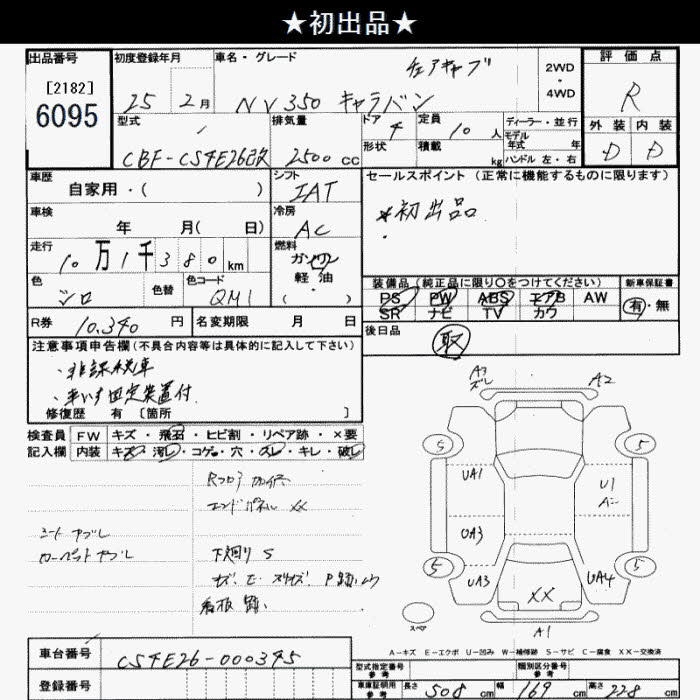 ★初出品★
出品番号
[2182]
6095
初度登録年月
25 2月
車名・グレード
チェアキャブ
NV350 キャラバン
2WD
・
4WD
評価点
R
型式
CBF-CS4E26改
排気量
2500 cc
ドア 4
形状
定員 10 人
積載 kg
ディーラー・並行
モデル年式 年
ハンドル 左・右
外装 内装
D D
車歴
自家用・( )
シフト
IAT
セールスポイント (正常に機能するものに限ります)
*初出品
車検
年 月( 日)
冷房
AC
走行
10万1千380km
燃料
ガソリン
軽油
( )
色
シロ
色替
色コード
QM1
装備品(純正品に限り○をつけてください)
PS PW ABS エアB AW
SR ナビ TV カワ
新車保証書
有・無
R券 10,340 円
名変期限 月 日
後日品
取
注意事項申告欄(不具合内容等は具体的に記入して下さい)
・非課税車
・車いす固定装置付
修復歴 有 [箇所 ]
検査員
記入欄
FW キズ・飛石・ヒビ割・リペア跡・×要
内装 キズ・汚レ・コゲ・穴・スレ・キレ・破レ
Rフロア
エンドパネル XX
シートヤブレ
カーペットヤブレ
下廻り S
看板跡
A3
ズレ
A2
5
5
UA1
U1
UA3
5
5
UA3
UA4
XX
スペア
A1
A－キズ E－エクボ U－凹み W－補修跡 S－サビ C－腐食 XX－交換済
車台番号
CS4E26-000345
登録番号
型式指定番号
参考
類別区分番号
参考
車庫証明用
参考
長さ 508 cm 幅 169 cm 高さ 228 cm